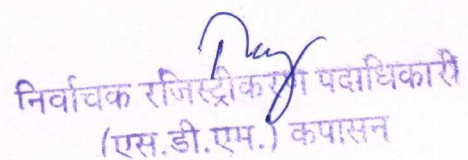 निर्वाचक रजिस्ट्रीकरण पदाधिकारी
(एस.डी.एम.) कपासन